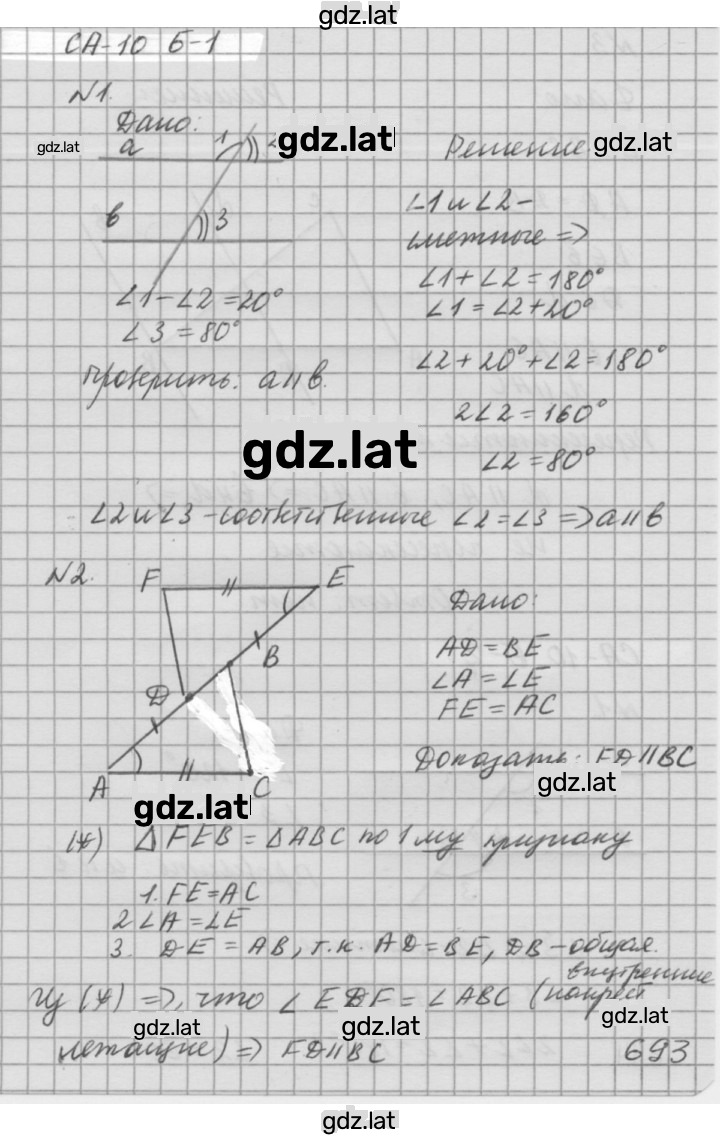 gdz.lat
СА-10 Б-1
N1.
Дано:
gdz.lat
gdz.lat
gdz.lat
Решение
a
1
2
b
3
∠1 и ∠2 -
смежные =>
∠1 + ∠2 = 180°
∠1 = ∠2 + 20°
∠1 - ∠2 = 20°
∠3 = 80°
Проверить: a || b.
∠2 + 20° + ∠2 = 180°
2∠2 = 160°
∠2 = 80°
gdz.lat
∠2 и ∠3 - соответственные ∠2 = ∠3 => a || b
N2.
F
E
B
D
A
C
Дано:
AD = BE
∠A = ∠E
FE = AC
Доказать: FD || BC
gdz.lat
gdz.lat
(*) △FEB = △ABC по 1му признаку
1. FE = AC
2 ∠A = ∠E
3. DE = AB, т.к. AD = BE, DB - общая.
Из (*) =>, что ∠EDF = ∠ABC (внутренние накрест
gdz.lat
gdz.lat
gdz.lat
лежащие) => FD || BC
693
gdz.lat